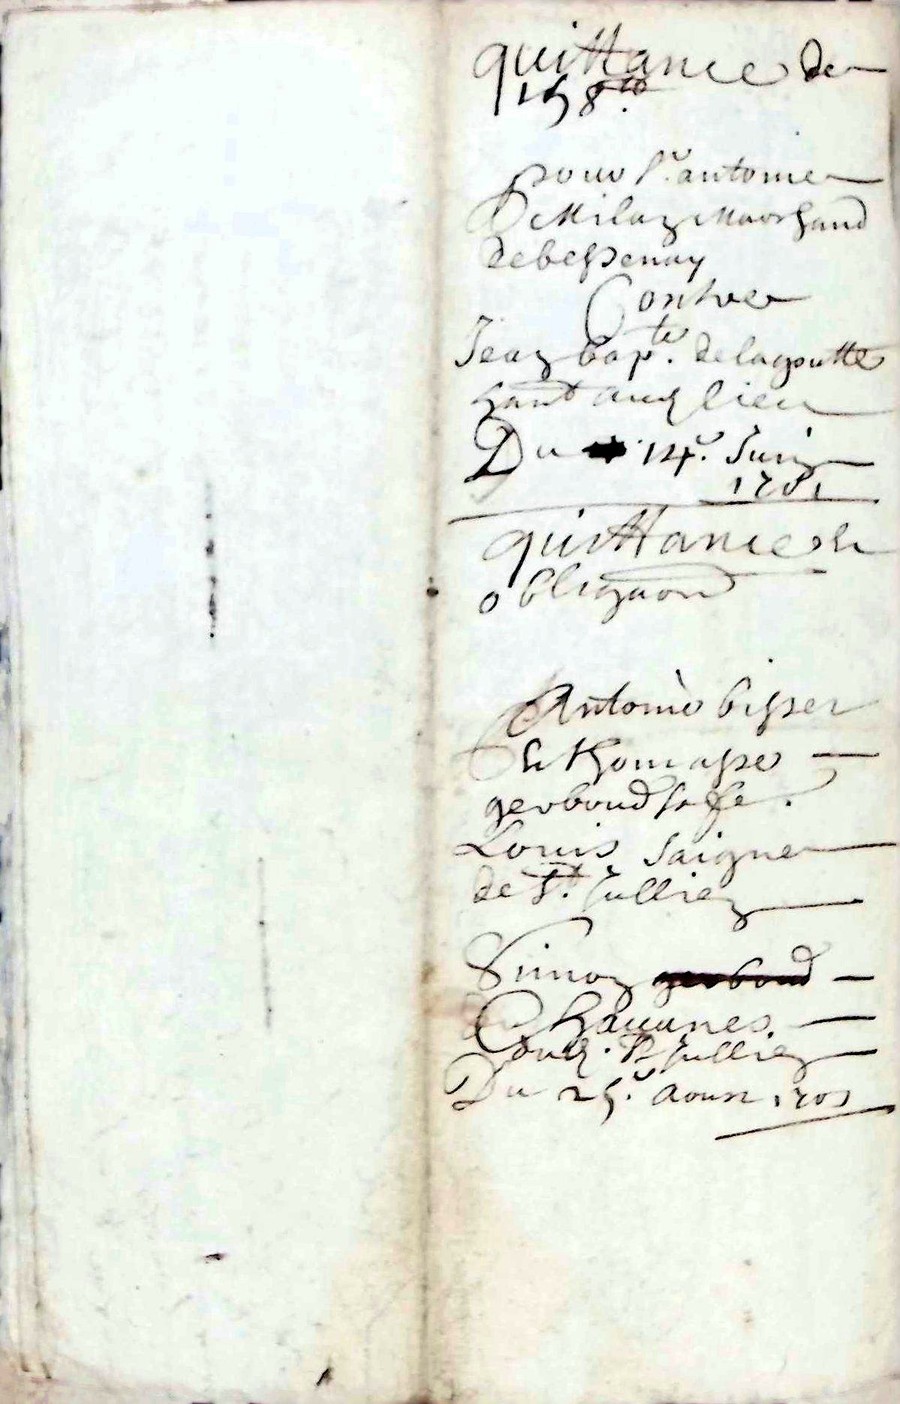 quittance de
158 ₶
pour Sr. antoine
De Milaz Marchand
de bessenay
Contre
Jean bapte. delagoutte
hant
Du 14e. Juin
1701
quittance et
obligaon
Antoine bisser
et thomasse
gerboud sa fe.
Louis Saigne
de St. Jullien
Simon gerboud
Chavanes
St Jullien
Du 25e. aoust 1701